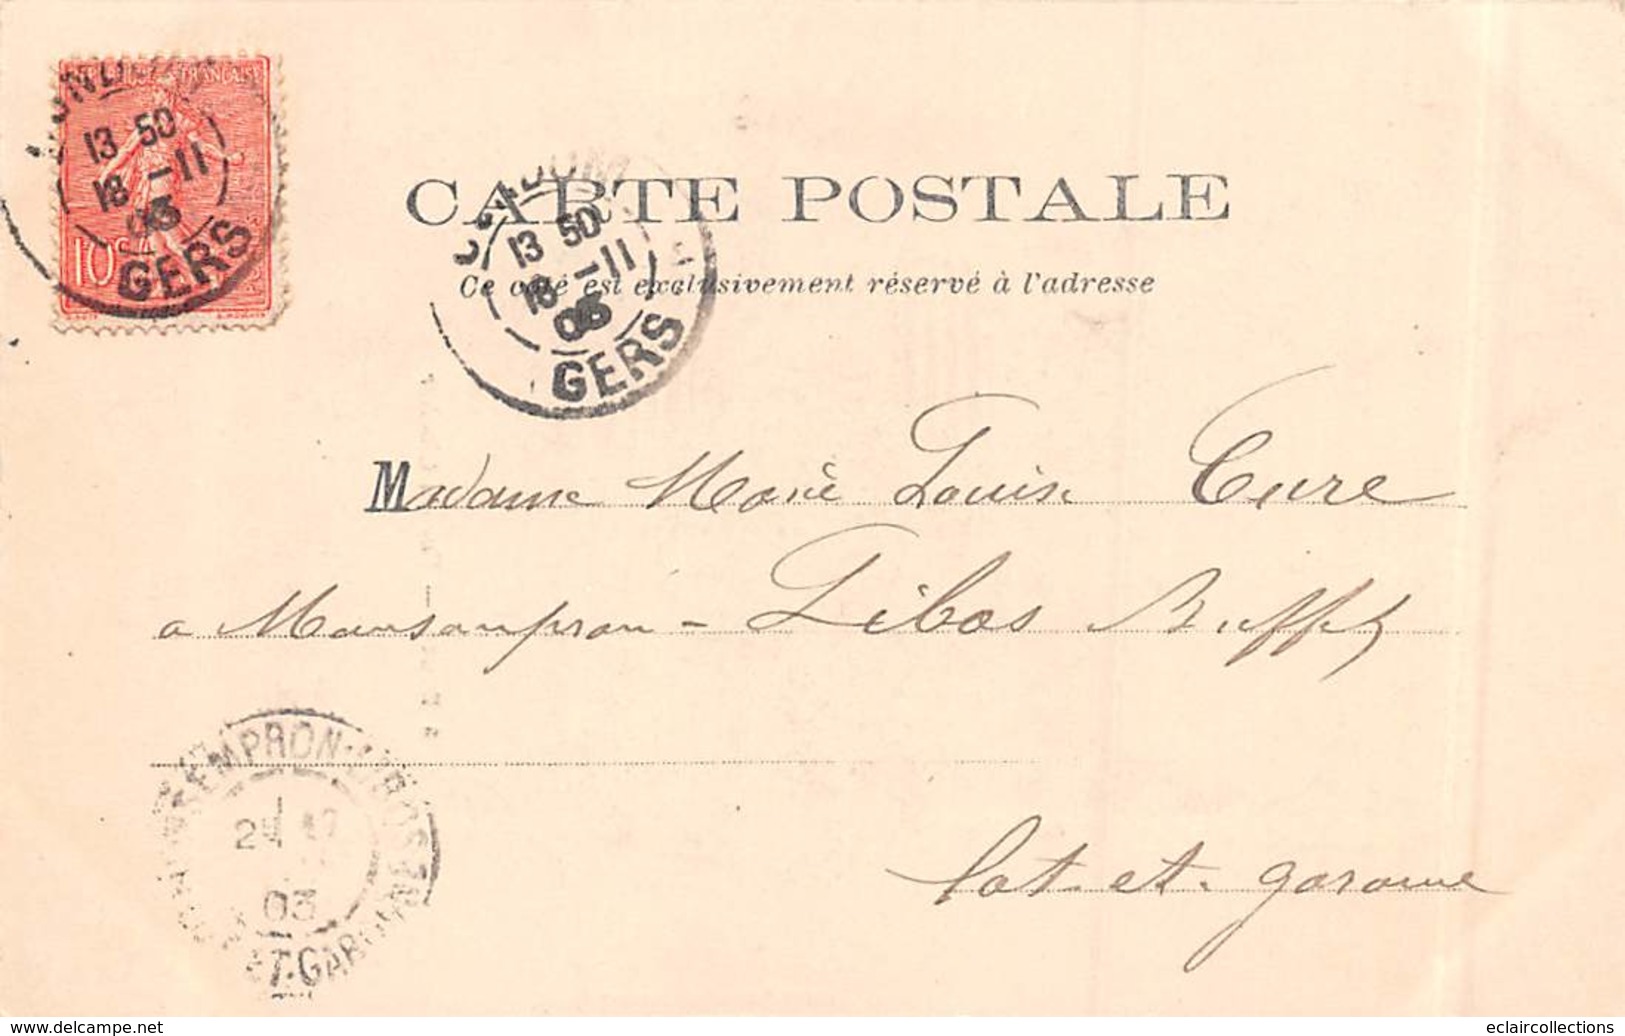 RÉPUBLIQUE FRANÇAISE
13 50
18 -11
03
GERS
10c
CONDOM
13 50
18 -11
03
GERS
CARTE POSTALE
Ce côté est exclusivement réservé à l'adresse
Madame Marie Louise Cure
a Monsempron - Libos Buffet
Lot-et-garonne
MONSEMPRON-LIBOS
03
LOT-ET-GARONNE
eclaircollections
www.delcampe.net